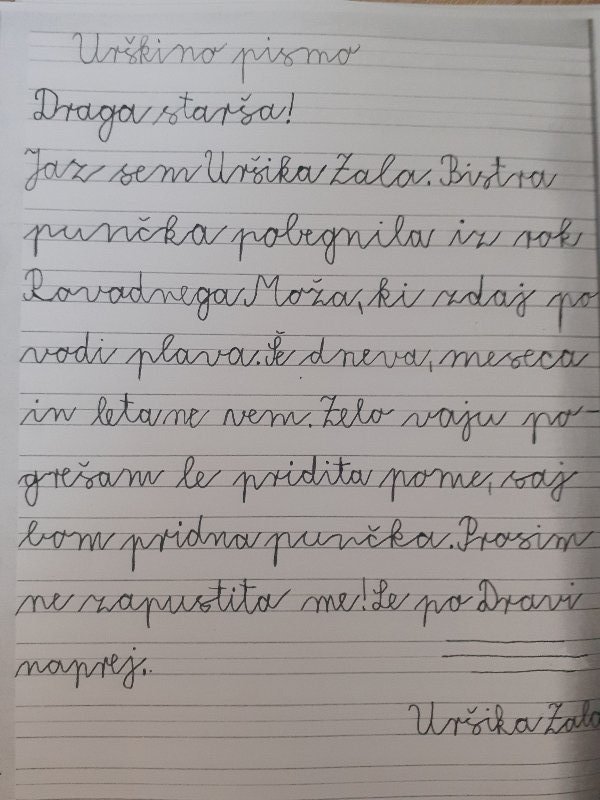 Urškino pismo
Draga starša!
Jaz sem Uršika Zala. Bistra
punčka pobegnila iz rok
Povodnega Moža, ki zdaj po
vodi plava. Še dneva, meseca
in leta ne vem. Zelo vaju po-
grešam le pridita pome, saj
bom pridna punčka. Prosim
ne zapustita me! Le po Dravi
naprej.
Uršika Zala